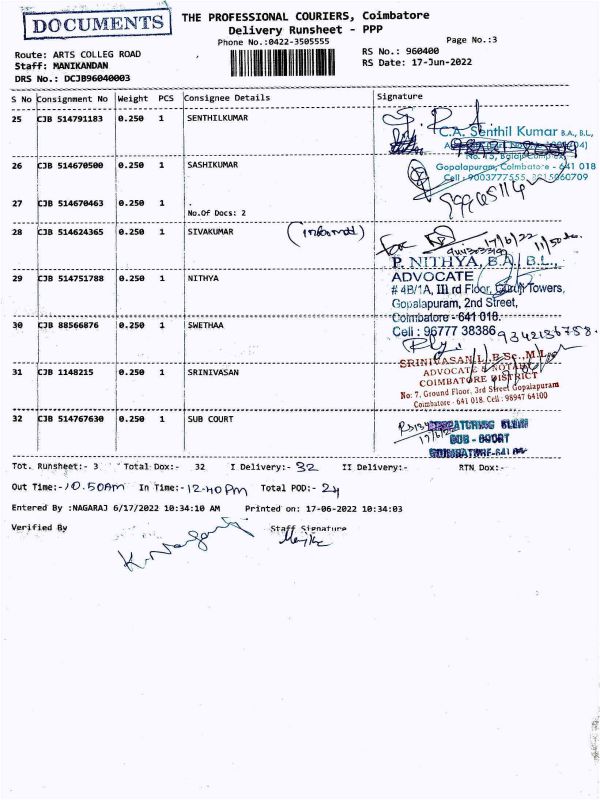 DOCUMENTS
THE PROFESSIONAL COURIERS, Coimbatore
Delivery Runsheet - PPP
Phone No.:0422-3505555
Page No.:3
Route: ARTS COLLEG ROAD
RS No.: 960400
Staff: MANIKANDAN
RS Date: 17-Jun-2022
DRS No.: DCJB96040003
S No Consignment No Weight PCS Consignee Details Signature
25 CJB 514791183 0.250 1 SENTHILKUMAR
C.A. Senthil Kumar B.A., B.L.,
Gopalapuram, Coimbatore - 641 018
Cell : 9003777555,
26 CJB 514670500 0.250 1 SASHIKUMAR
27 CJB 514670463 0.250 1 .
No.Of Docs: 2
28 CJB 514624365 0.250 1 SIVAKUMAR
17/6/22
29 CJB 514751788 0.250 1 NITHYA
P. NITHYA, B.A., B.L.,
ADVOCATE
# 4B/1A, III rd Floor, Towers,
Gopalapuram, 2nd Street,
Coimbatore - 641 018.
Cell : 96777 38386
30 CJB 88566876 0.250 1 SWETHAA
9342136758.
31 CJB 1148215 0.250 1 SRINIVASAN
SRINIVASAN.L, B.Sc., M.L.,
ADVOCATE & NOTARY
COIMBATORE DISTRICT
No: 7, Ground Floor, 3rd Street Gopalapuram
Coimbatore - 641 018. Cell : 98947 64100
32 CJB 514767630 0.250 1 SUB COURT
SUB - COURT
Tot. Runsheet:- 3 Total Dox:- 32 I Delivery:- 32 II Delivery:- RTN Dox:-
Out Time:- 10.50AM In Time:- 12-40 Pm Total POD:- 24
Entered By :NAGARAJ 6/17/2022 10:34:10 AM Printed on: 17-06-2022 10:34:03
Verified By Staff Signature
K. Nagaraj